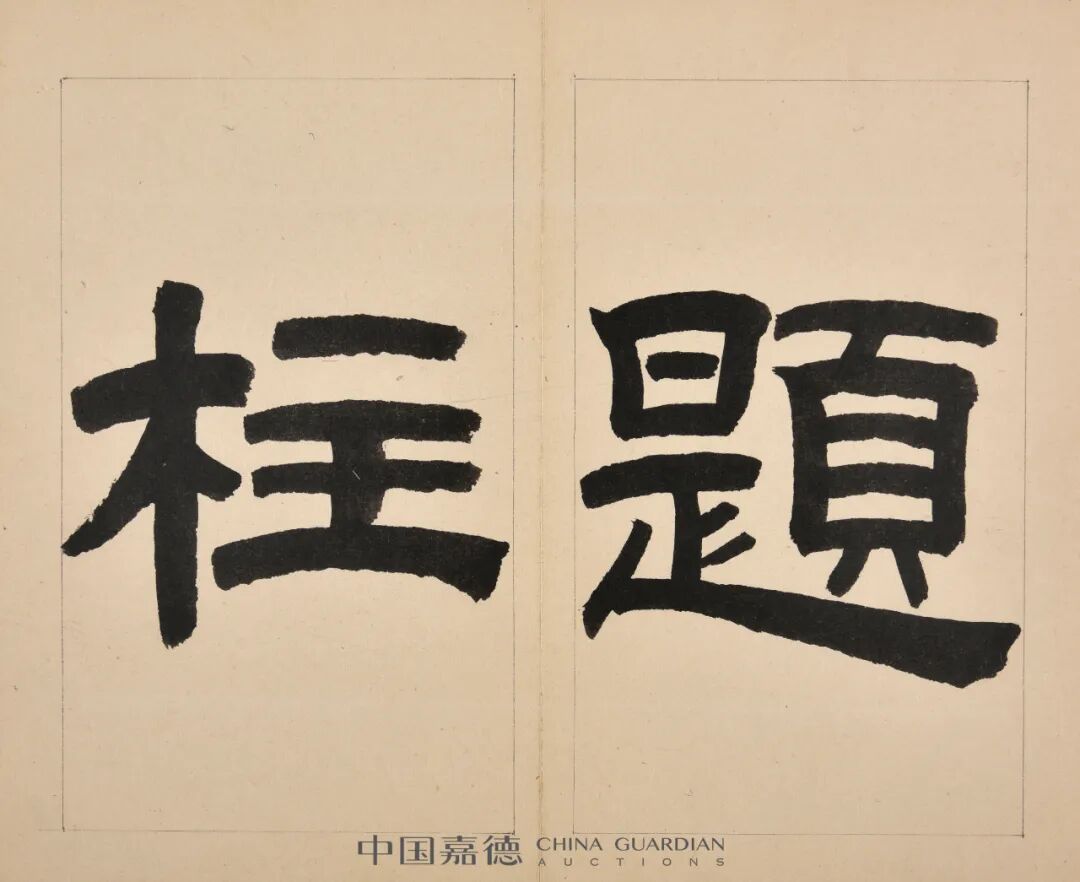 題柱
中国嘉德 CHINA GUARDIAN
AUCTIONS